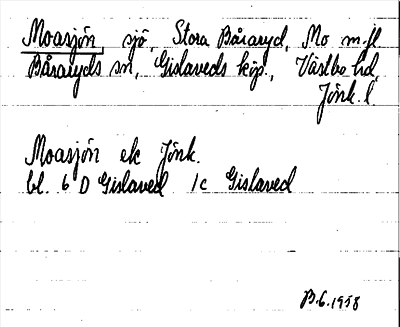 Moasjön sjö, Stora Båraryd, Mo m.fl.
Båraryds sn, Gislaveds köp., Västbo hd,
Jönk. l
Moasjön ek Jönk.
bl. 6 D Gislaved 1c Gislaved
B.G. 1958